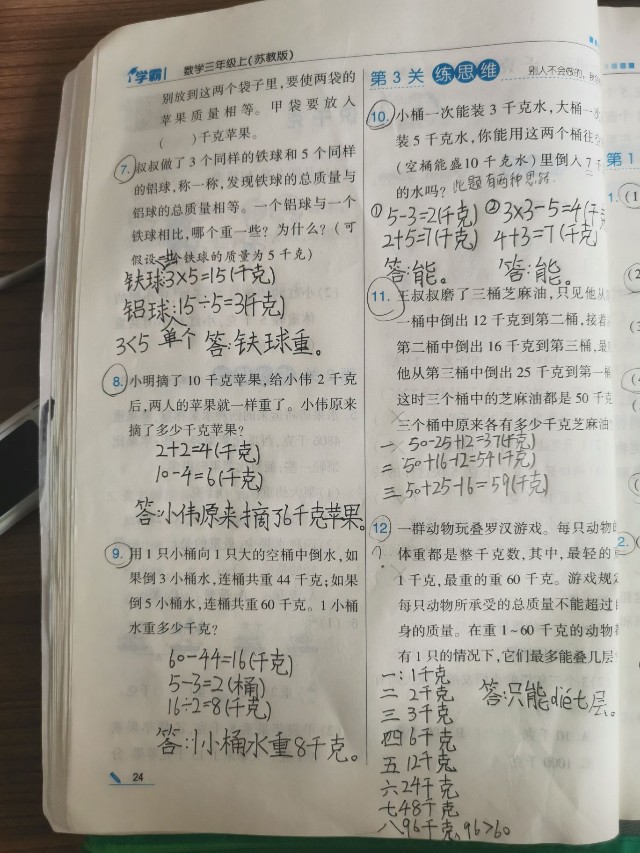 学霸 数学三年级上(苏教版)
别放到这两个袋子里,要使两袋的
苹果质量相等。甲袋要放入
( )千克苹果。
7. 叔叔做了3个同样的铁球和5个同样
的铝球,称一称,发现铁球的总质量与
铝球的总质量相等。一个铝球与一个
铁球相比,哪个重一些?为什么?(可
假设一个铁球的质量为5千克)
铁球:3×5=15(千克)
铝球:15÷5=3(千克)
3<5 单个 答:铁球重。
8. 小明摘了10千克苹果,给小伟2千克
后,两人的苹果就一样重了。小伟原来
摘了多少千克苹果?
2+2=4(千克)
10-4=6(千克)
答:小伟原来摘了6千克苹果。
9. 用1只小桶向1只大的空桶中倒水,如
果倒3小桶水,连桶共重44千克;如果
倒5小桶水,连桶共重60千克。1小桶
水重多少千克?
60-44=16(千克)
5-3=2(桶)
16÷2=8(千克)
答:1小桶水重8千克。
24
第3关 练思维 别人不会做的,我
10. 小桶一次能装3千克水,大桶一次
装5千克水,你能用这两个桶往空
(空桶能盛10千克水)里倒入7千
的水吗? 此题有两种思路
① 5-3=2(千克) ② 3×3-5=4(千
2+5=7(千克) 4+3=7(千克)
答:能。 答:能。
11. 王叔叔磨了三桶芝麻油,只见他从
一桶中倒出12千克到第二桶,接着
第二桶中倒出16千克到第三桶,最
他从第三桶中倒出25千克到第一桶
这时三个桶中的芝麻油都是50千克
三个桶中原来各有多少千克芝麻油
一 50-25+12=37(千克)
二 50+16-12=54(千克)
三 50+25-16=59(千克)
12. 一群动物玩叠罗汉游戏。每只动物的
? 体重都是整千克数,其中,最轻的
1千克,最重的重60千克。游戏规定
每只动物所承受的总质量不能超过自
身的质量。在重1~60千克的动物
有1只的情况下,它们最多能叠几层
一:1千克
二 2千克 答:只能dié七层。
三 3千克
四 6千克
五 12千克
六 24千克
七 48千克
八 96千克, 96>60
第1
1. (1
(2
(3
(4
2.